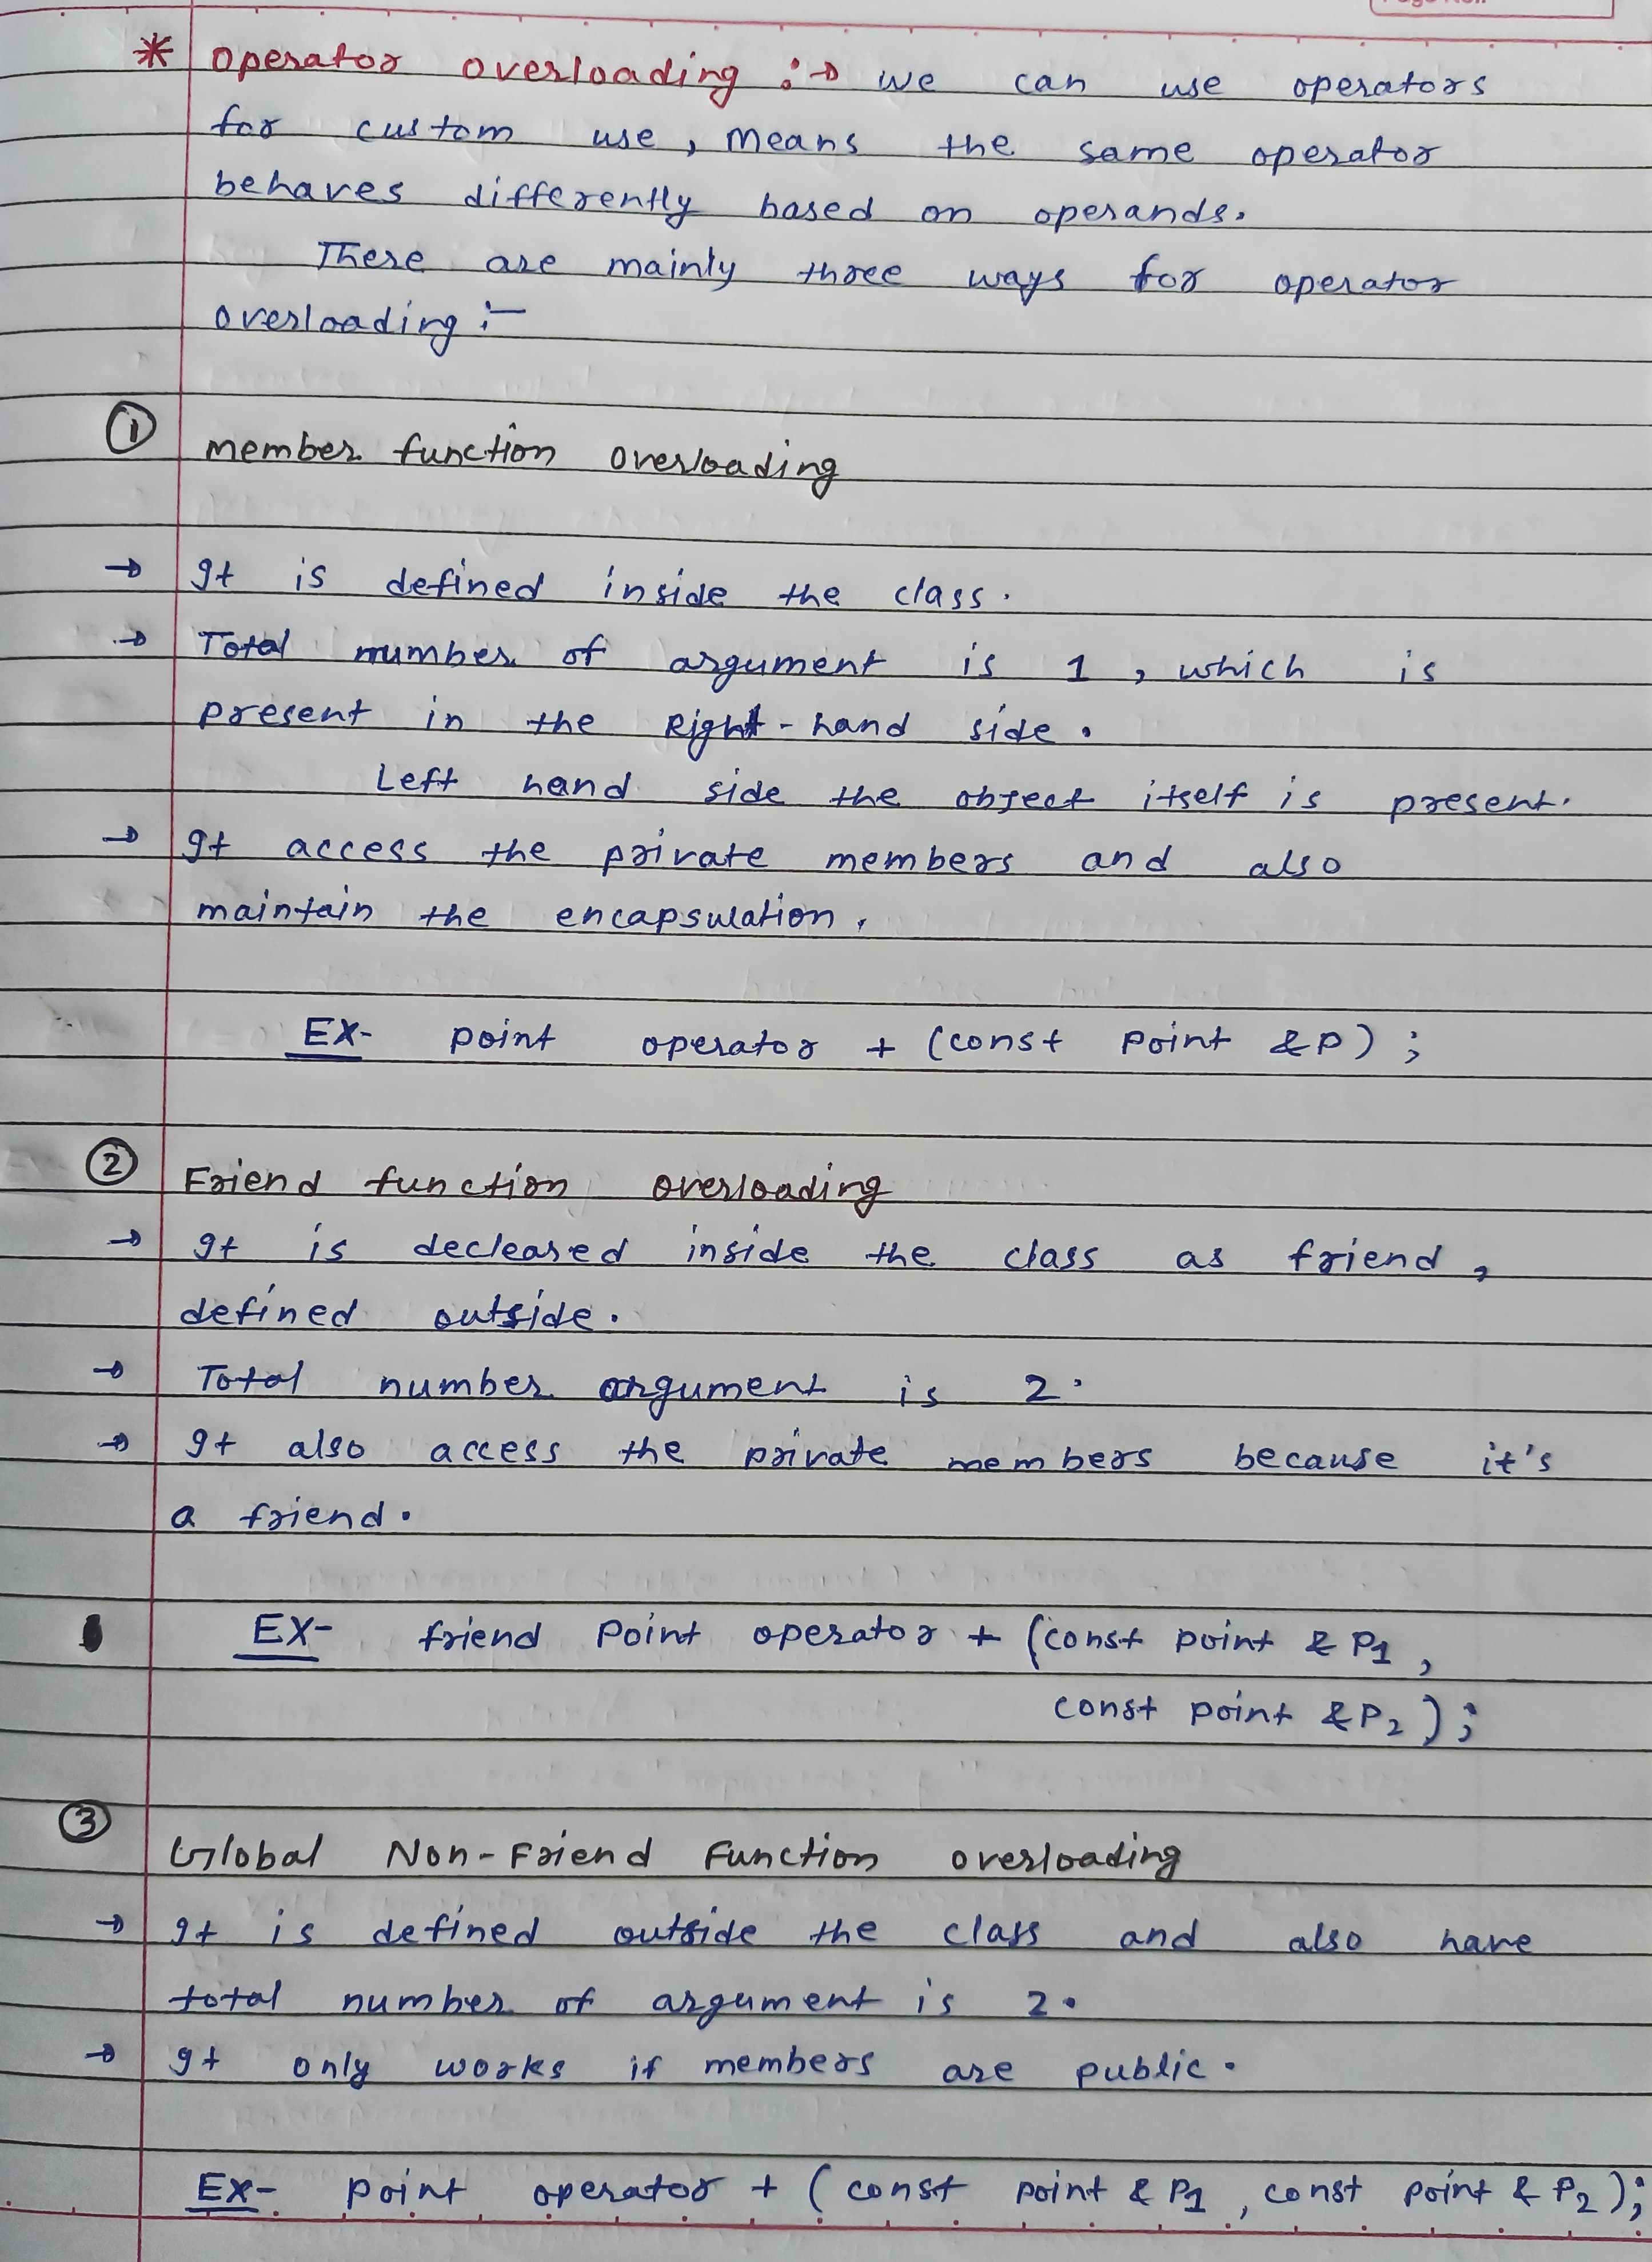 * Operator overloading :→ we can use operators
for custom use, means the same operator
behaves differently based on operands.
There are mainly three ways for operator
overloading :-
① member function overloading
→ It is defined inside the class.
→ Total number of argument is 1, which is
present in the Right-hand side.
Left hand side the object itself is present.
→ It access the private members and also
maintain the encapsulation.
EX- point operator + (const point &p);
② Friend function overloading
→ It is decleared inside the class as friend,
defined outside.
→ Total number argument is 2.
→ It also access the private members because it's
a friend.
EX- friend Point operator + (const point & P1,
const point &P2);
③ Global Non-Friend Function overloading
→ It is defined outside the class and also have
total number of argument is 2.
→ It only works if members are public.
EX- point operator + (const point & P1, const point & P2);